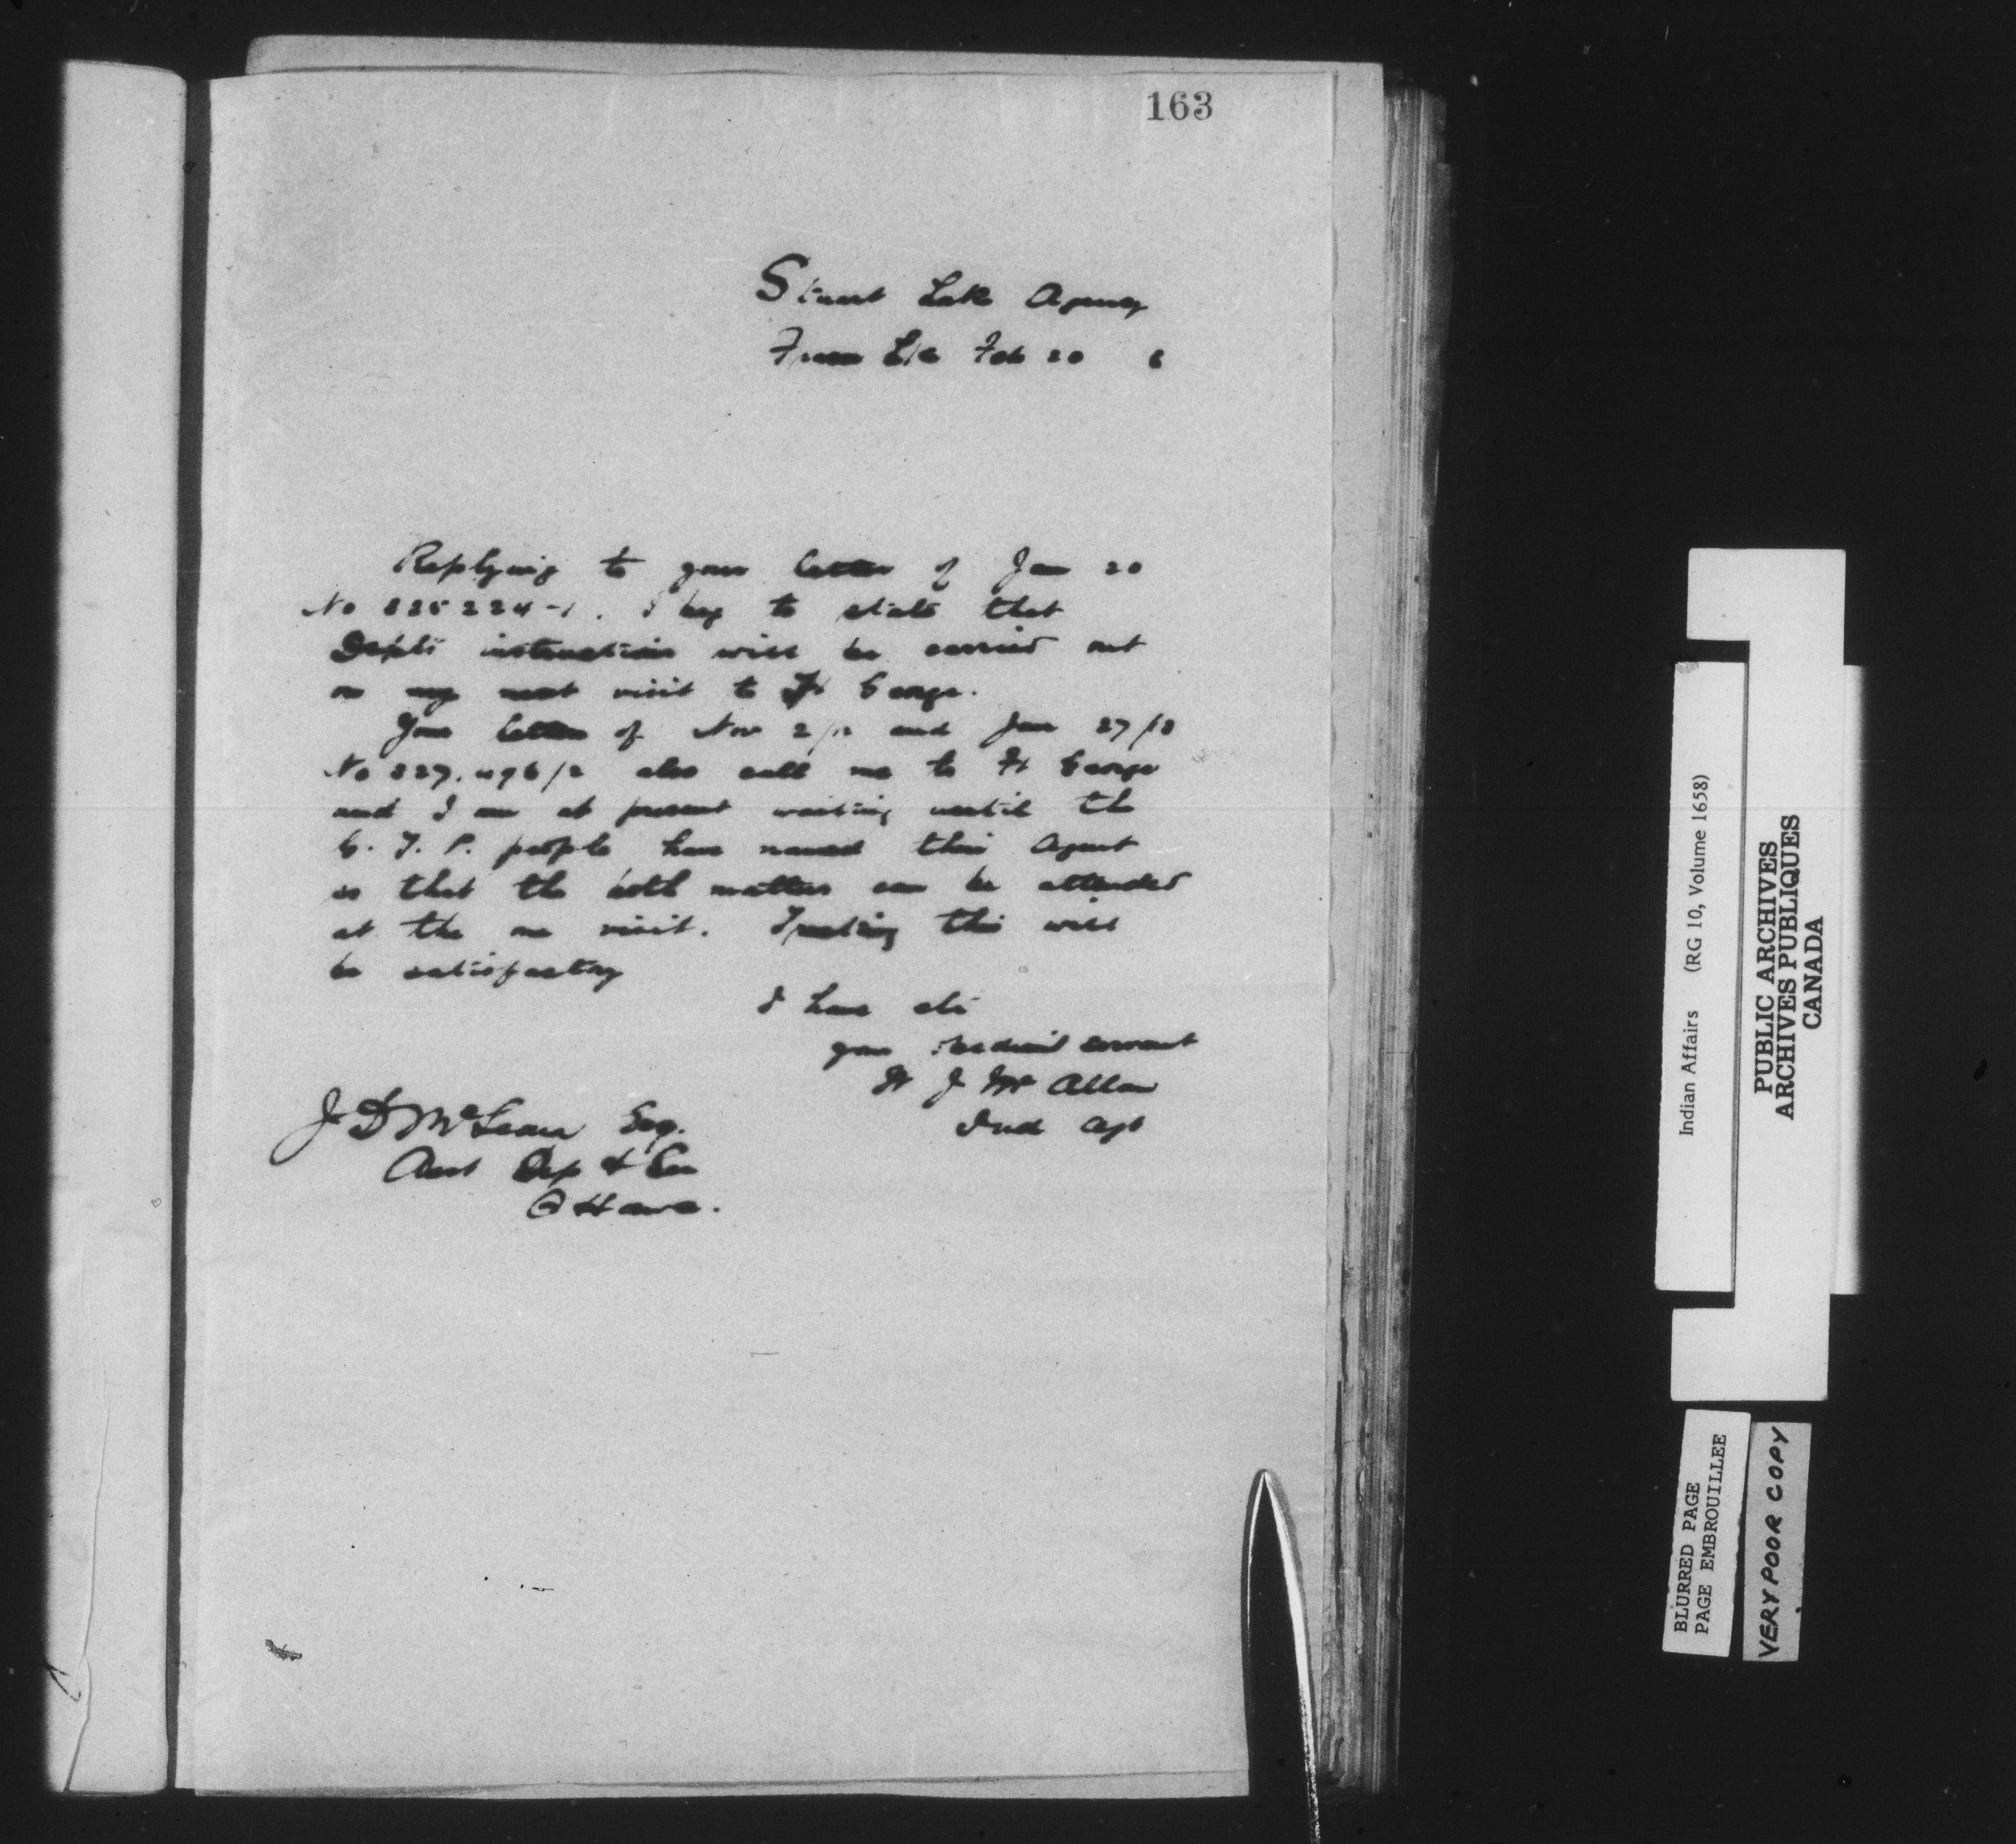 163
Stuart Lake Agency
Fraser Lke Feb 20
Replying to your letter of Jan 20
No 225224-1. I beg to state that
Depts instructions will be carried out
on my next visit to Ft George.
Your letter of Nov 2/12 and Jan 27/13
No 227,496/2 also call me to Ft George
and I am at present waiting until the
G. T. P. people have named their Agent
so that the both matters can be attended
at the one visit. Trusting this will
be satisfactory
I have etc
your obedient servant
W J McAllan
Ind Agt
J D McLean Esq.
Asst Dep & Sec
Ottawa.
Indian Affairs (RG 10, Volume 1658)
PUBLIC ARCHIVES
ARCHIVES PUBLIQUES
CANADA
BLURRED PAGE
PAGE EMBROUILLEE
VERY POOR COPY